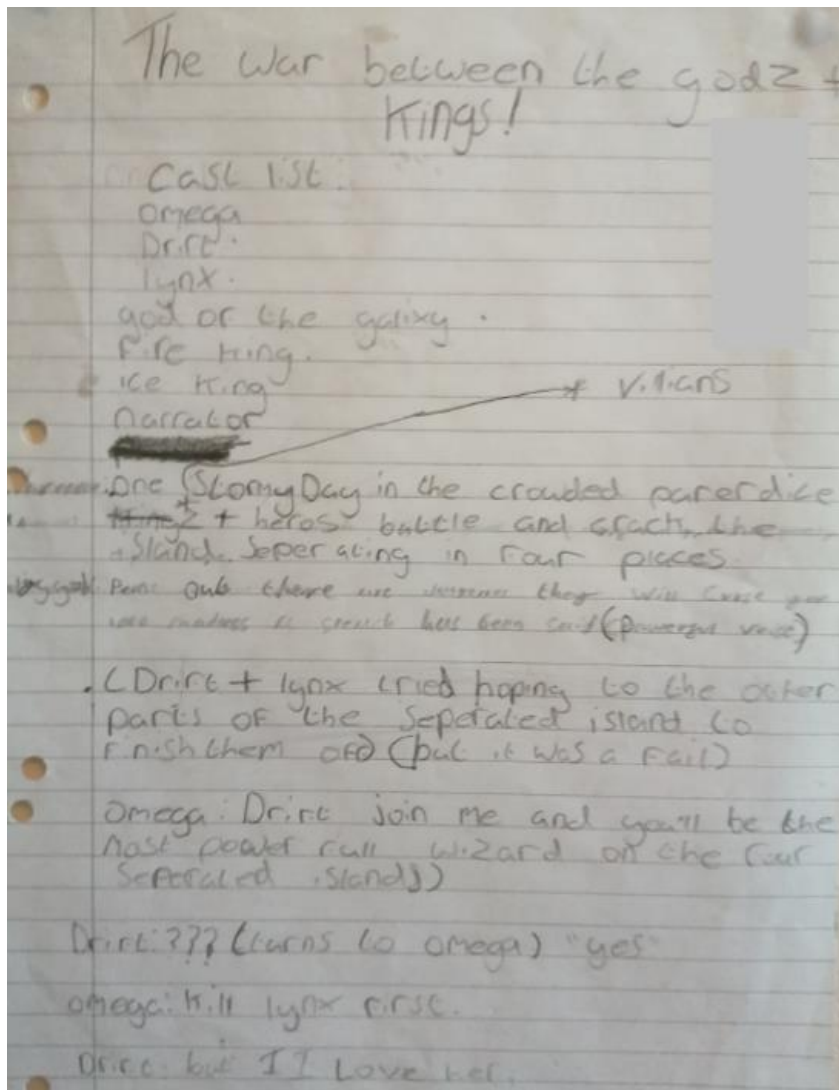 The war between the godz +
Kings!
Cast list:
omega
Drift.
lynx.
god of the galixy.
Fire King.
ice King
narrator
villians
one (Stormy Day in the crowded parerdice
+ heros battle and crack the
island seperating in four pieces
out there are they will
has been (powerful voice)
. (Drift + lynx tried hoping to the outer
parts of the seperated island to
finish them off) (but it was a fail)
omega: Drift join me and you'll be the
most power full wizard on the four
seperated island))
Drift: ??? (turns to omega) "yes"
omega: Kill lynx first.
Drift: but I I Love her.